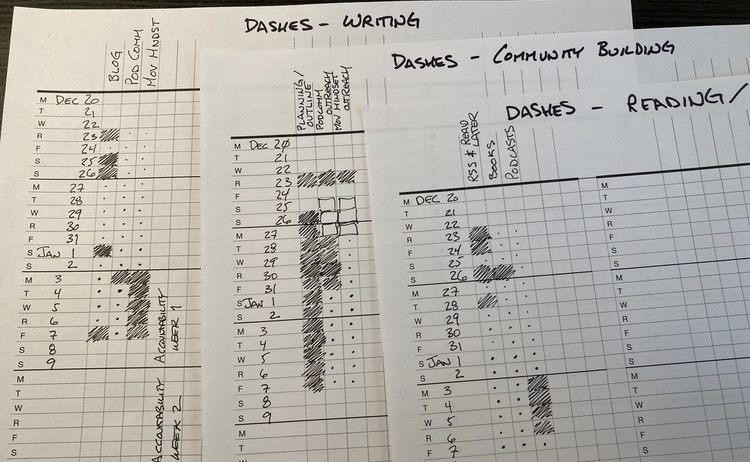 DASHES - WRITING
BLOG
POD COMM
MON MNDST
M DEC 20
T 21
W 22
R 23
F 24
S 25
S 26
M 27
T 28
W 29
R 30
F 31
S JAN 1
S 2
M 3
T 4
W 5
R 6
F 7
S 8
S 9
M
T
W
R
F
S
ACCOUNTABILITY
WEEK 1
ACCOUNTABILITY
WEEK 2
DASHES - COMMUNITY BUILDING
PLANNING/
OUTLINE
PODCOMM
OUTREACH
MON MINDSET
OUTREACH
M DEC 20
T 21
W 22
R 23
F 24
S 25
S 26
M 27
T 28
W 29
R 30
F 31
S JAN 1
S 2
M 3
T 4
W 5
R 6
F 7
S 8
S 9
M
T
DASHES - READING/
RSS & READ
LATER
BOOKS
PODCASTS
M DEC 20
T 21
W 22
R 23
F 24
S 25
S 26
M 27
T 28
W 29
R 30
F 31
S JAN 1
S 2
M 3
T 4
W 5
R 6
F 7
M
T
W
R
F
S
S
M
T
W
R
F
S
S
M
T
W
R
F
S